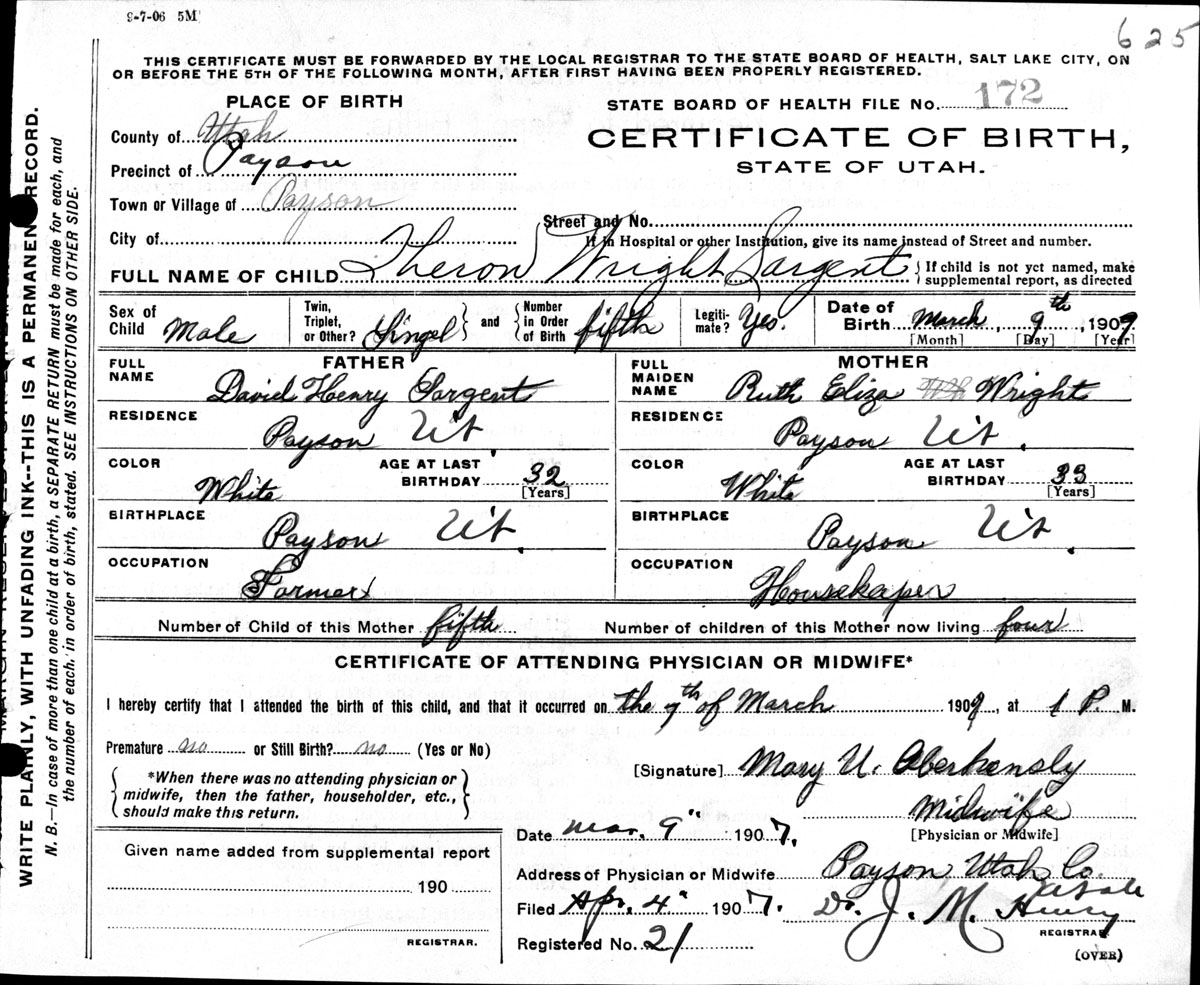 9-7-06 5M
625
THIS CERTIFICATE MUST BE FORWARDED BY THE LOCAL REGISTRAR TO THE STATE BOARD OF HEALTH, SALT LAKE CITY, ON
OR BEFORE THE 5TH OF THE FOLLOWING MONTH, AFTER FIRST HAVING BEEN PROPERLY REGISTERED.
PLACE OF BIRTH
STATE BOARD OF HEALTH FILE No. 172
County of Utah
CERTIFICATE OF BIRTH,
Precinct of Payson
STATE OF UTAH.
Town or Village of Payson
Street and No.
City of
If in Hospital or other Institution, give its name instead of Street and number.
FULL NAME OF CHILD Theron Wright Sargent { If child is not yet named, make
supplemental report, as directed
Sex of Child Male Twin, Triplet, or Other? Singel and Number in Order of Birth fifth Legiti-mate? Yes. Date of Birth March, 9th, 1907
[Month] [Day] [Year]
FATHER MOTHER
FULL NAME David Henry Sargent FULL MAIDEN NAME Ruth Eliza Wright
RESIDENCE Payson Ut. RESIDENCE Payson Ut.
COLOR White AGE AT LAST BIRTHDAY 32 [Years] COLOR White AGE AT LAST BIRTHDAY 33 [Years]
BIRTHPLACE Payson Ut. BIRTHPLACE Payson Ut.
OCCUPATION Farmer OCCUPATION Housekaper
Number of Child of this Mother fifth Number of children of this Mother now living four
CERTIFICATE OF ATTENDING PHYSICIAN OR MIDWIFE*
I hereby certify that I attended the birth of this child, and that it occurred on the 9th of March 1909, at 1 P. M.
Premature no or Still Birth? no (Yes or No)
*When there was no attending physician or
midwife, then the father, householder, etc.,
should make this return.
[Signature] Mary U.
Midwife
[Physician or Midwife]
Date Mar. 9" 1907.
Given name added from supplemental report
190
REGISTRAR.
Address of Physician or Midwife Payson Utah Co.
Filed Apr. 4" 1907. Dr. J. M. Henry
REGISTRAR
Registered No. 21
(OVER)
WRITE PLAINLY, WITH UNFADING INK--THIS IS A PERMANENT RECORD.
N. B.—In case of more than one child at a birth, a SEPARATE RETURN must be made for each, and
the number of each, in order of birth, stated. SEE INSTRUCTIONS ON OTHER SIDE.